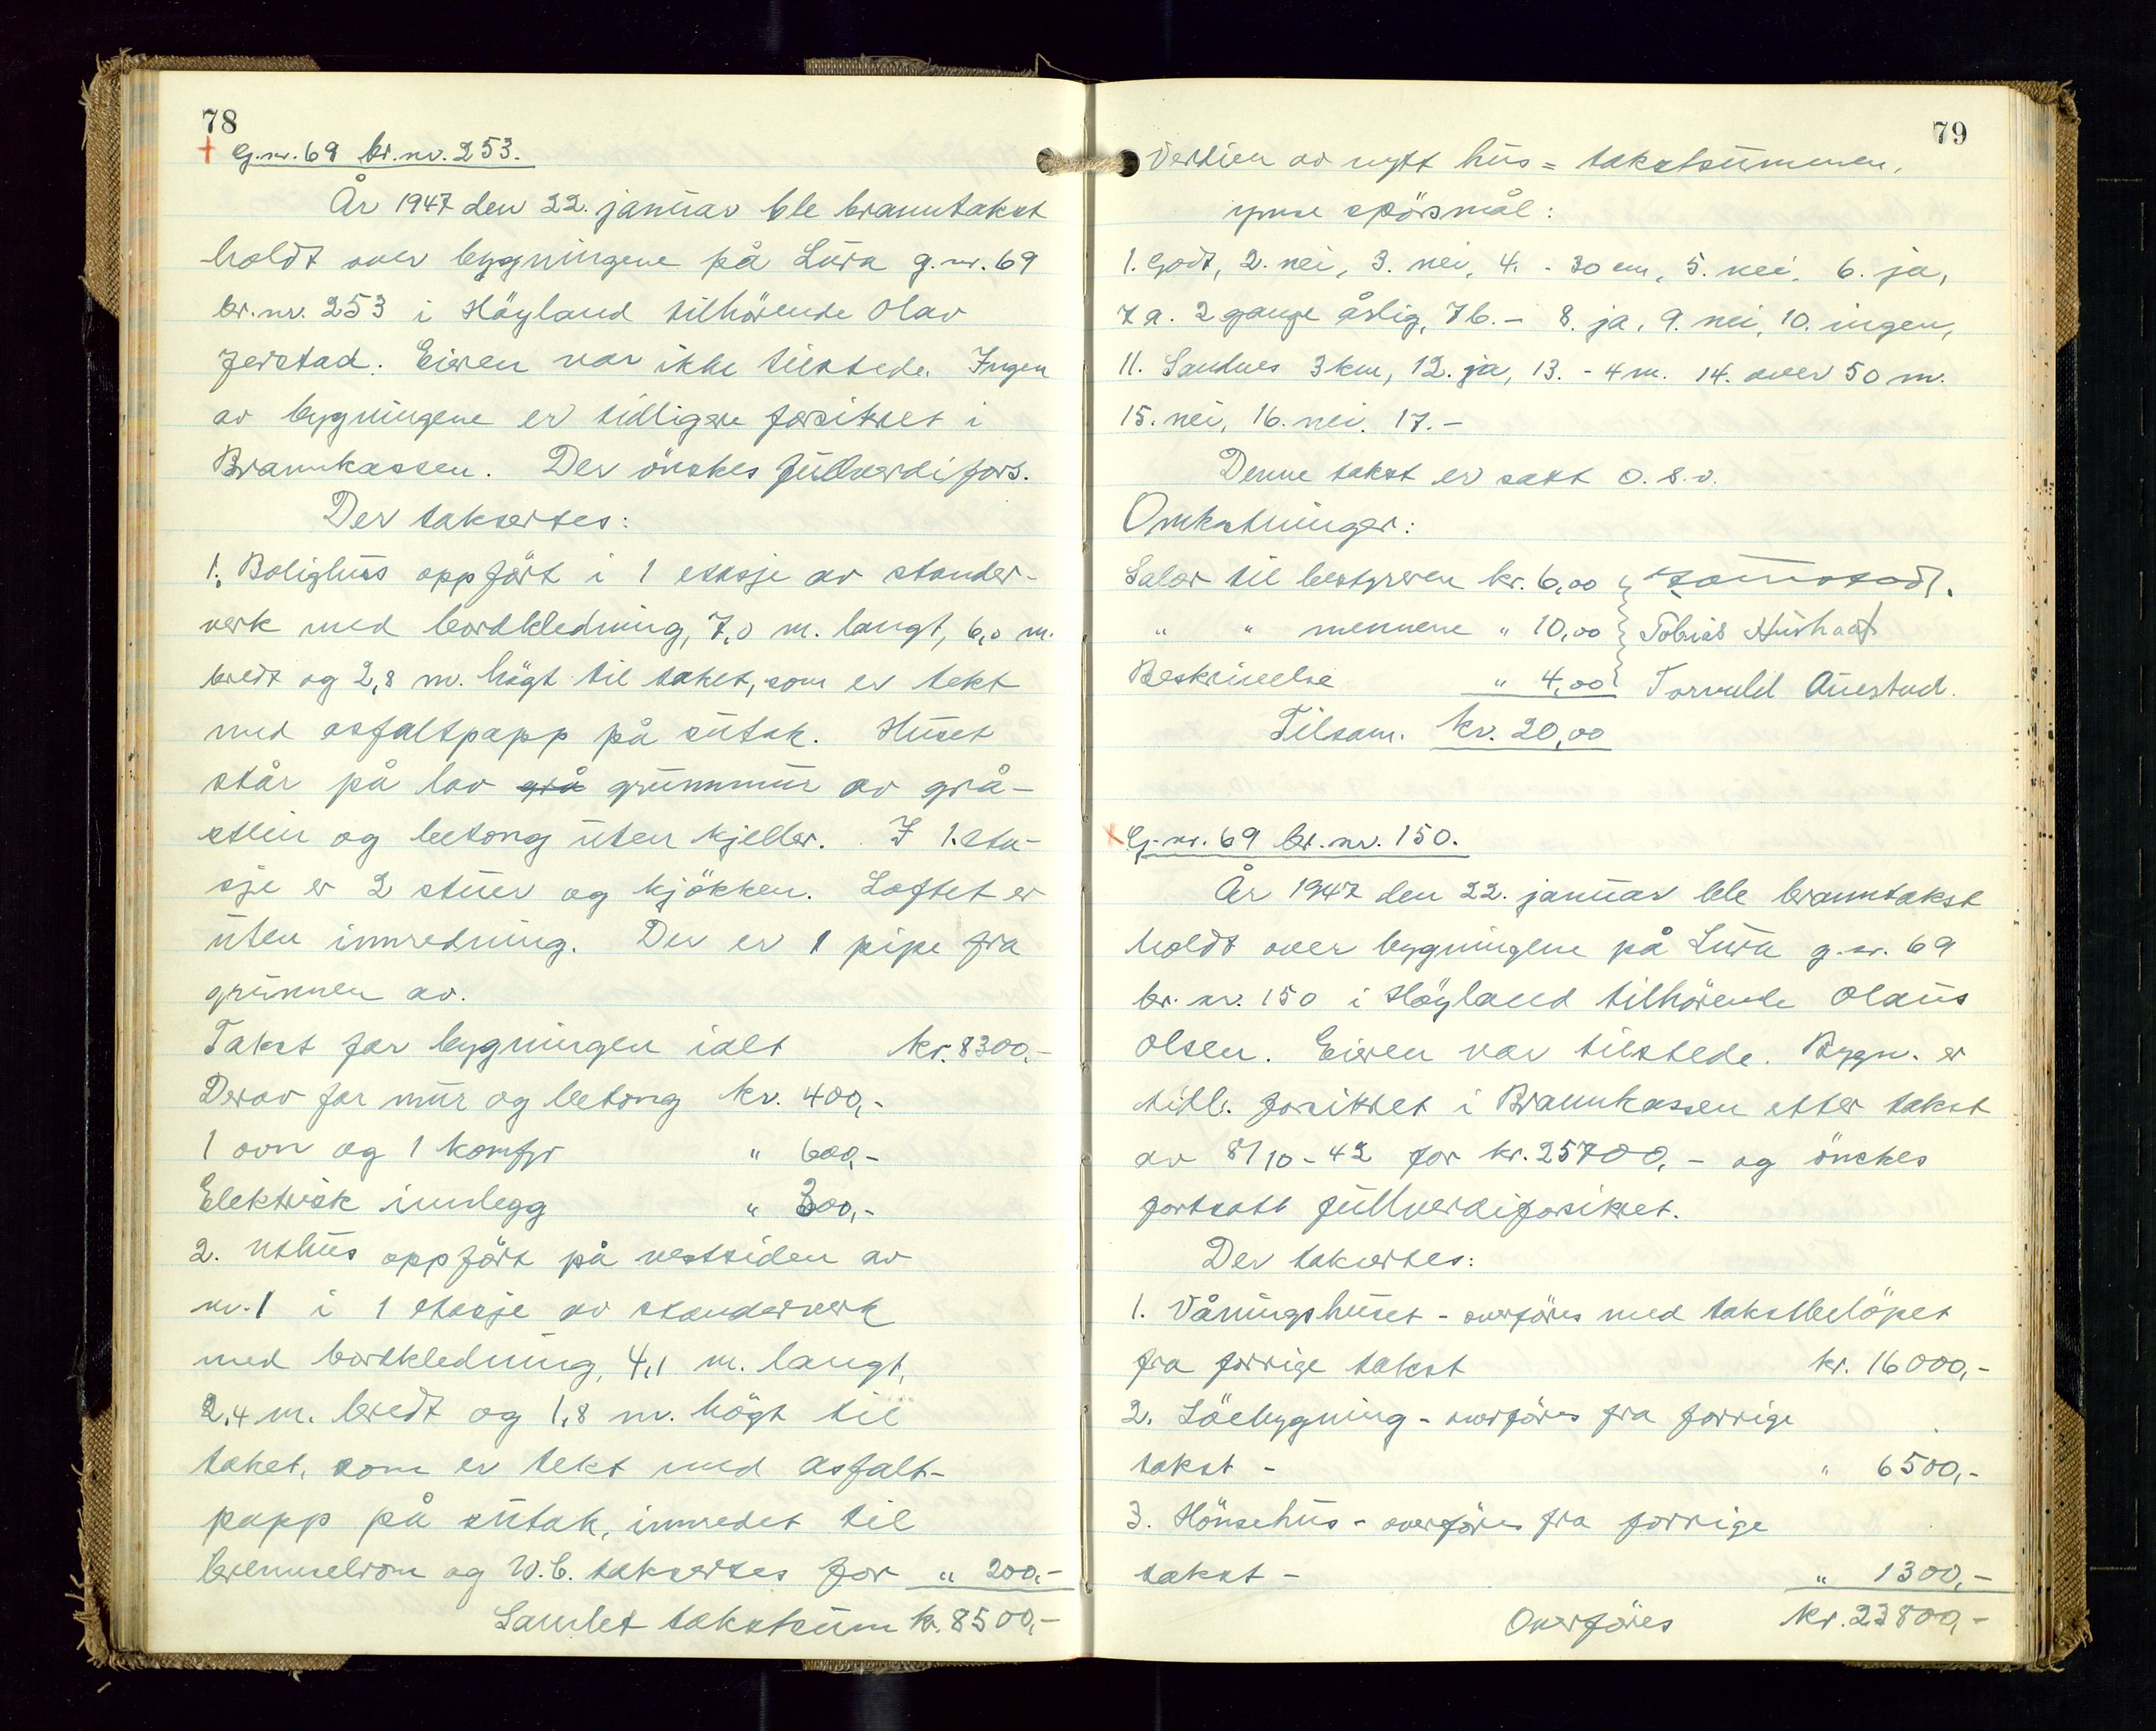 78
G.nr. 69 br.nr. 253.
År 1947 den 22. januar ble branntakst
holdt over bygningene på Lura g.nr. 69
br.nr. 253 i Höyland tilhörende Olav
Jerstad. Eieren var ikke tilstede. Ingen
av bygningene er tidligere forsikret i
Brannkassen. Der önskes fullverdifors.
Der takseres:
1. Bolighus oppfört i 1 etasje av stander-
verk med bordkledning, 7,0 m. langt, 6,0 m.
bredt og 2,8 m. högt til taket, som er tekt
med asfaltpapp på sutak. Huset
står på lav grå grunnmur av grå-
stein og betong uten kjeller. I 1. eta-
sje er 2 stuer og kjökken. Loftet er
uten innredning. Der er 1 pipe fra
grunnen av.
Takst for bygningen ialt kr. 8300,-
Derav for mur og betong kr. 400,-
1 ovn og 1 komfyr " 600,-
Elektrisk innlegg " 300,-
2. Uthus oppfört på vestsiden av
nr. 1 i 1 etasje av standerverk
med bordkledning, 4,1 m. langt,
2,4 m. bredt og 1,8 m. högt til
taket, som er tekt med asfalt-
papp på sutak, innredet til
brenselrom og W.C. takseres for " 200,-
Samlet takstsum kr. 8500,-
79
Verdien av nytt hus = takstsummen.
ymse spörsmål:
1. Godt, 2. nei, 3. nei, 4. - 30 cm, 5. nei. 6. ja,
7 a. 2 gange årlig, 7 b. - 8. ja, 9. nei, 10. ingen,
11. Sandnes 3 km, 12. ja, 13. - 4 m. 14. over 50 m.
15. nei, 16. nei. 17. -
Denne takst er satt o.s.v.
Omkostninger:
Salær til bestyreren kr. 6,00
" " mennene " 10,00 Tobias
Beskrivelse " 4,00 Torvald Auestad.
Tilsam. kr. 20,00
G.nr. 69 br.nr. 150.
År 1947 den 22. januar ble branntakst
holdt over bygningene på Lura g.nr. 69
br.nr. 150 i Höyland tilhörende Olaus
Olsen. Eieren var tilstede. Bygn. er
tidl. forsikret i Brannkassen etter takst
av 8/10-42 for kr. 25700,- og önskes
fortsatt fullverdiforsikret.
Der takseres:
1. Våningshuset - overföres med takstbelöpet
fra forrige takst kr. 16000,-
2. Löebygning - overföres fra forrige
takst - " 6500,-
3. Hönsehus - overföres fra forrige
takst - " 1300,-
Overföres kr. 23800,-